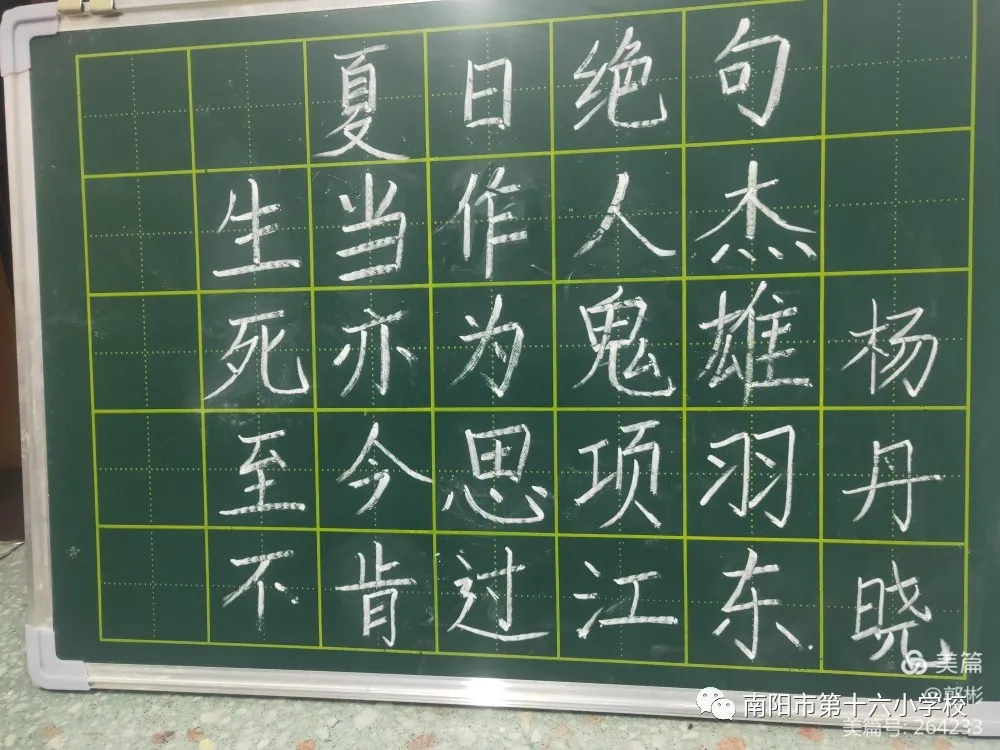 夏日绝句
生当作人杰
死亦为鬼雄
至今思项羽
不肯过江东
杨丹晓
美篇
@郭彬
南阳市第十六小学校
美篇号: 264233